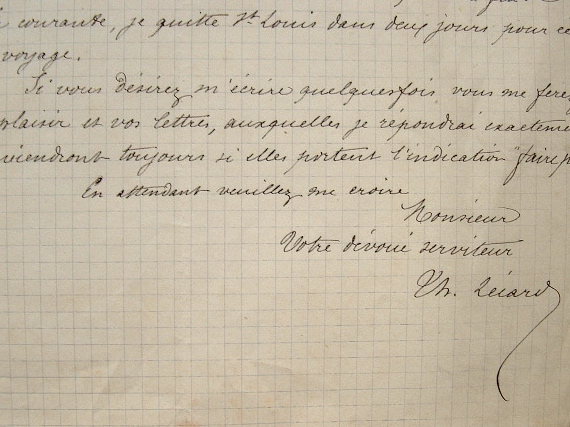 courante, je quitte St. Louis dans deux jours pour ce
voyage.
Si vous désirez m'écrire quelquesfois vous me ferez
plaisir et vos lettres, auxquelles je répondrai exacteme
viendront toujours si elles portent l'indication "faire p
En attendant veuillez me croire
Monsieur
Votre dévoué serviteur
Th. Lécard